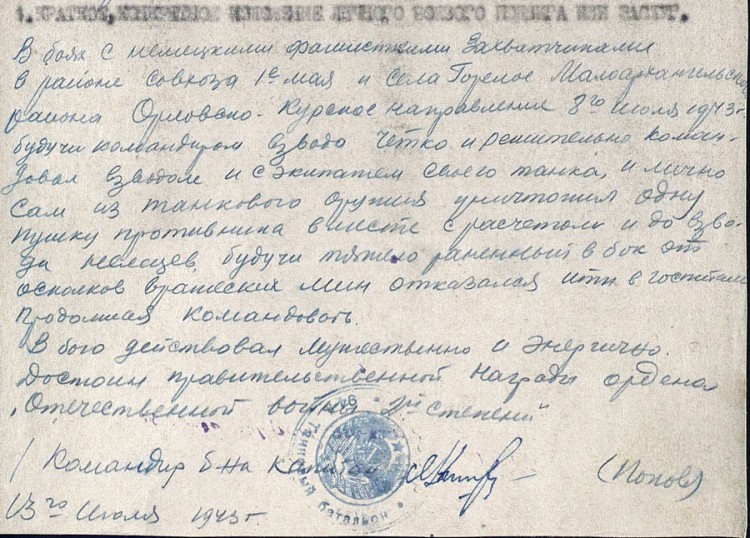 1. КРАТКОЕ, КОНКРЕТНОЕ ИЗЛОЖЕНИЕ ЛИЧНОГО БОЕВОГО ПОДВИГА ИЛИ ЗАСЛУГ.
В боях с немецкими фашисткими захватчиками
в районе совхоза 1е мая и села Горелое Малоархангельск
района Орловско-Курское направления 8го июля 1943г.
будучи командиром взвода чётко и решительно коман-
довал взводом и с экипажем своего танка, и лично
сам из танкового оружия уничтожил одну
пушку противника вместе с расчетом и до взво-
да немецев, будучи тяжело раненный в бок от
осколков вражеских мин отказался итти в госпиталь
продолжая командовать.
В бою действовал мужественно и энергично.
Достоин правительственной награды ордена
„Отечественной войны 2й степени"
Командир б-на капитан (Попов)
Танковый батальон
13го июля 1943г.